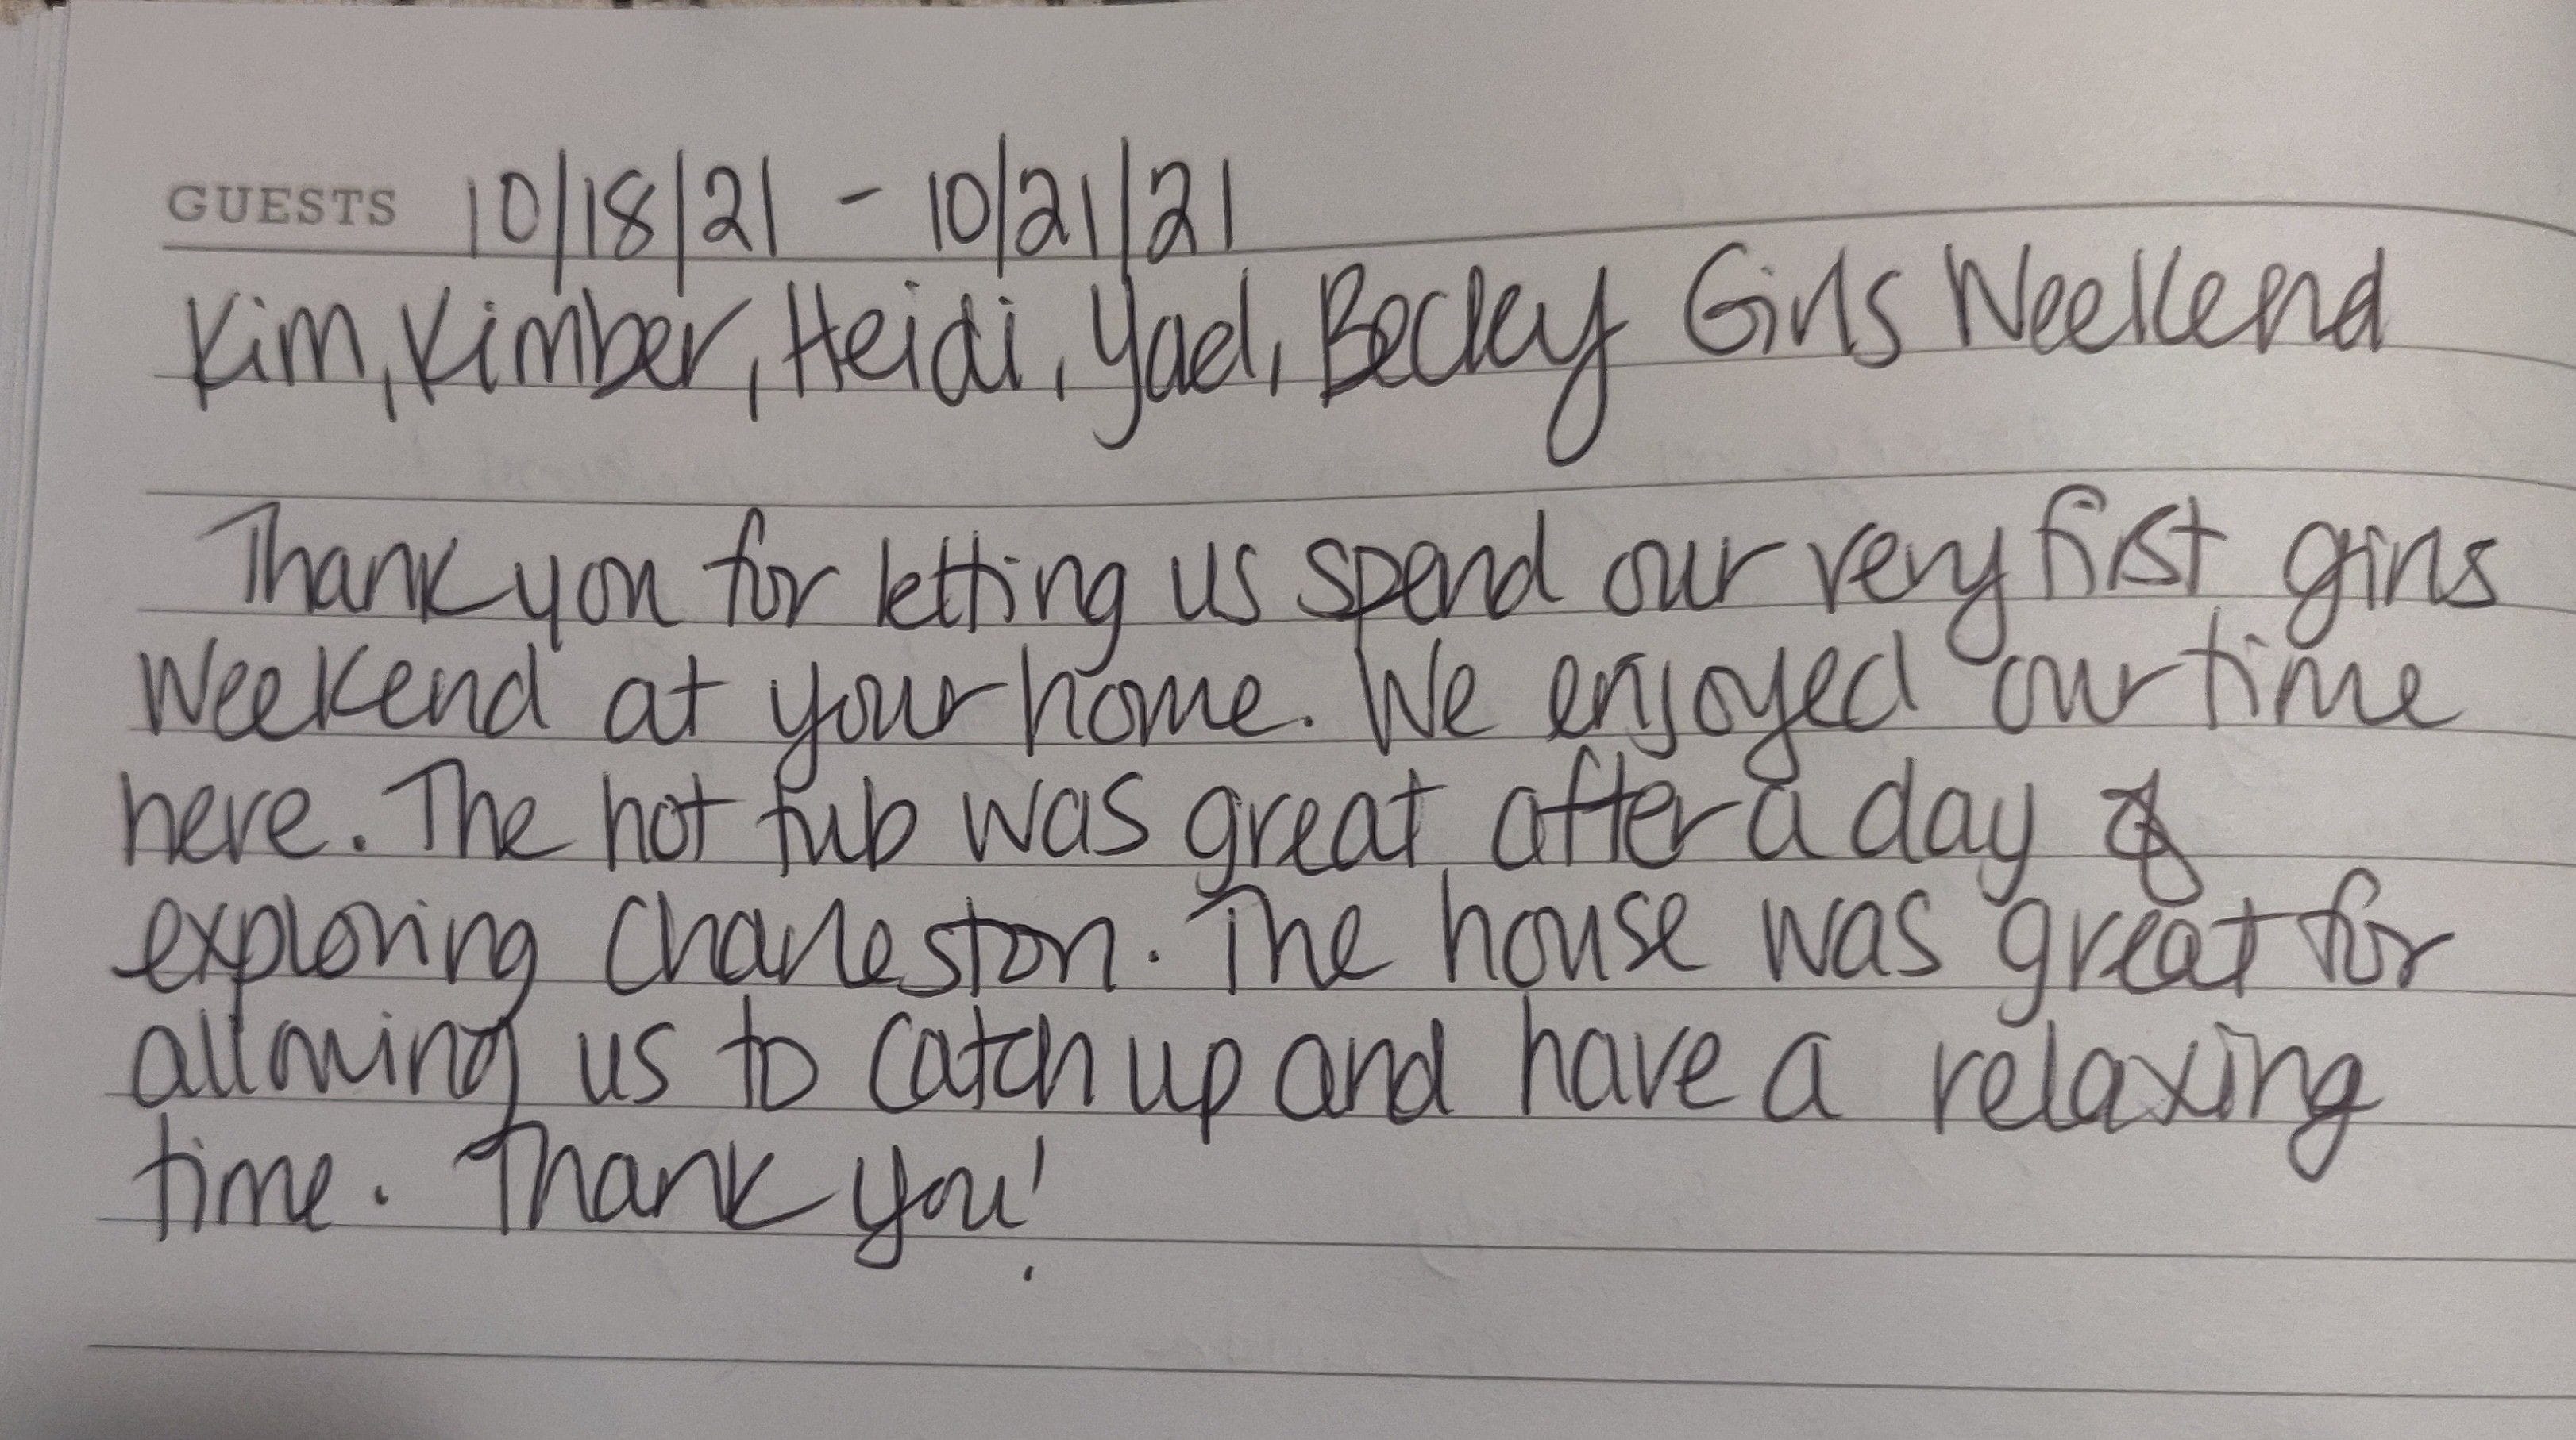 GUESTS 10/18/21 - 10/21/21
Kim, Kimber, Heidi, Yael, Becky Girls Weekend
Thank you for letting us spend our very first girls
weekend at your home. We enjoyed our time
here. The hot tub was great after a day of
exploring Charleston. The house was great for
allowing us to catch up and have a relaxing
time. Thank you!